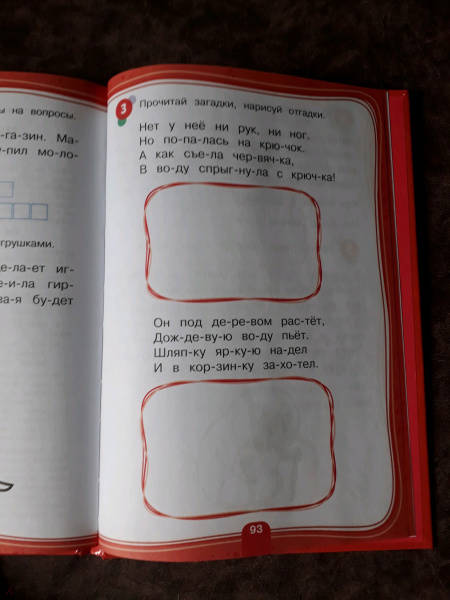 ы на вопросы.
-га-зин. Ма-
-пил мо-ло-
грушками.
е-ла-ет иг-
е-и-ла гир-
ва-я бу-дет
3 Прочитай загадки, нарисуй отгадки.
Нет у неё ни рук, ни ног.
Но по-па-лась на крю-чок.
А как съе-ла чер-вяч-ка,
В во-ду спрыг-ну-ла с крюч-ка!
Он под де-ре-вом рас-тёт,
Дож-де-ву-ю во-ду пьёт.
Шляп-ку яр-ку-ю на-дел
И в кор-зин-ку за-хо-тел.
93